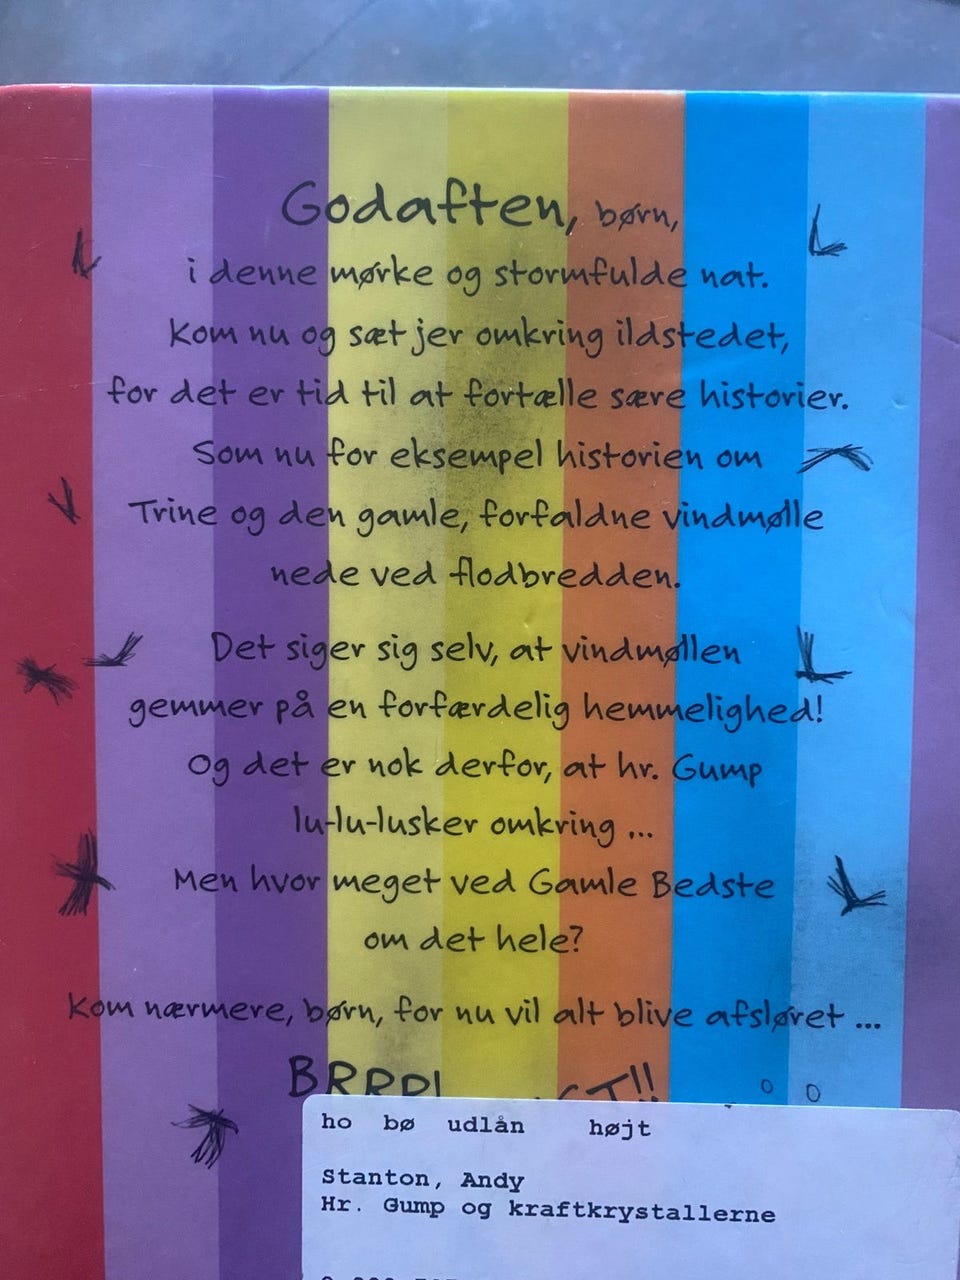 Godaften, børn,
i denne mørke og stormfulde nat.
Kom nu og sæt jer omkring ildstedet,
for det er tid til at fortælle sære historier.
Som nu for eksempel historien om
Trine og den gamle, forfaldne vindmølle
nede ved flodbredden.
Det siger sig selv, at vindmøllen
gemmer på en forfærdelig hemmelighed!
Og det er nok derfor, at hr. Gump
lu-lu-lusker omkring ...
Men hvor meget ved Gamle Bedste
om det hele?
Kom nærmere, børn, for nu vil alt blive afsløret ...
ho bø udlån højt
Stanton, Andy
Hr. Gump og kraftkrystallerne